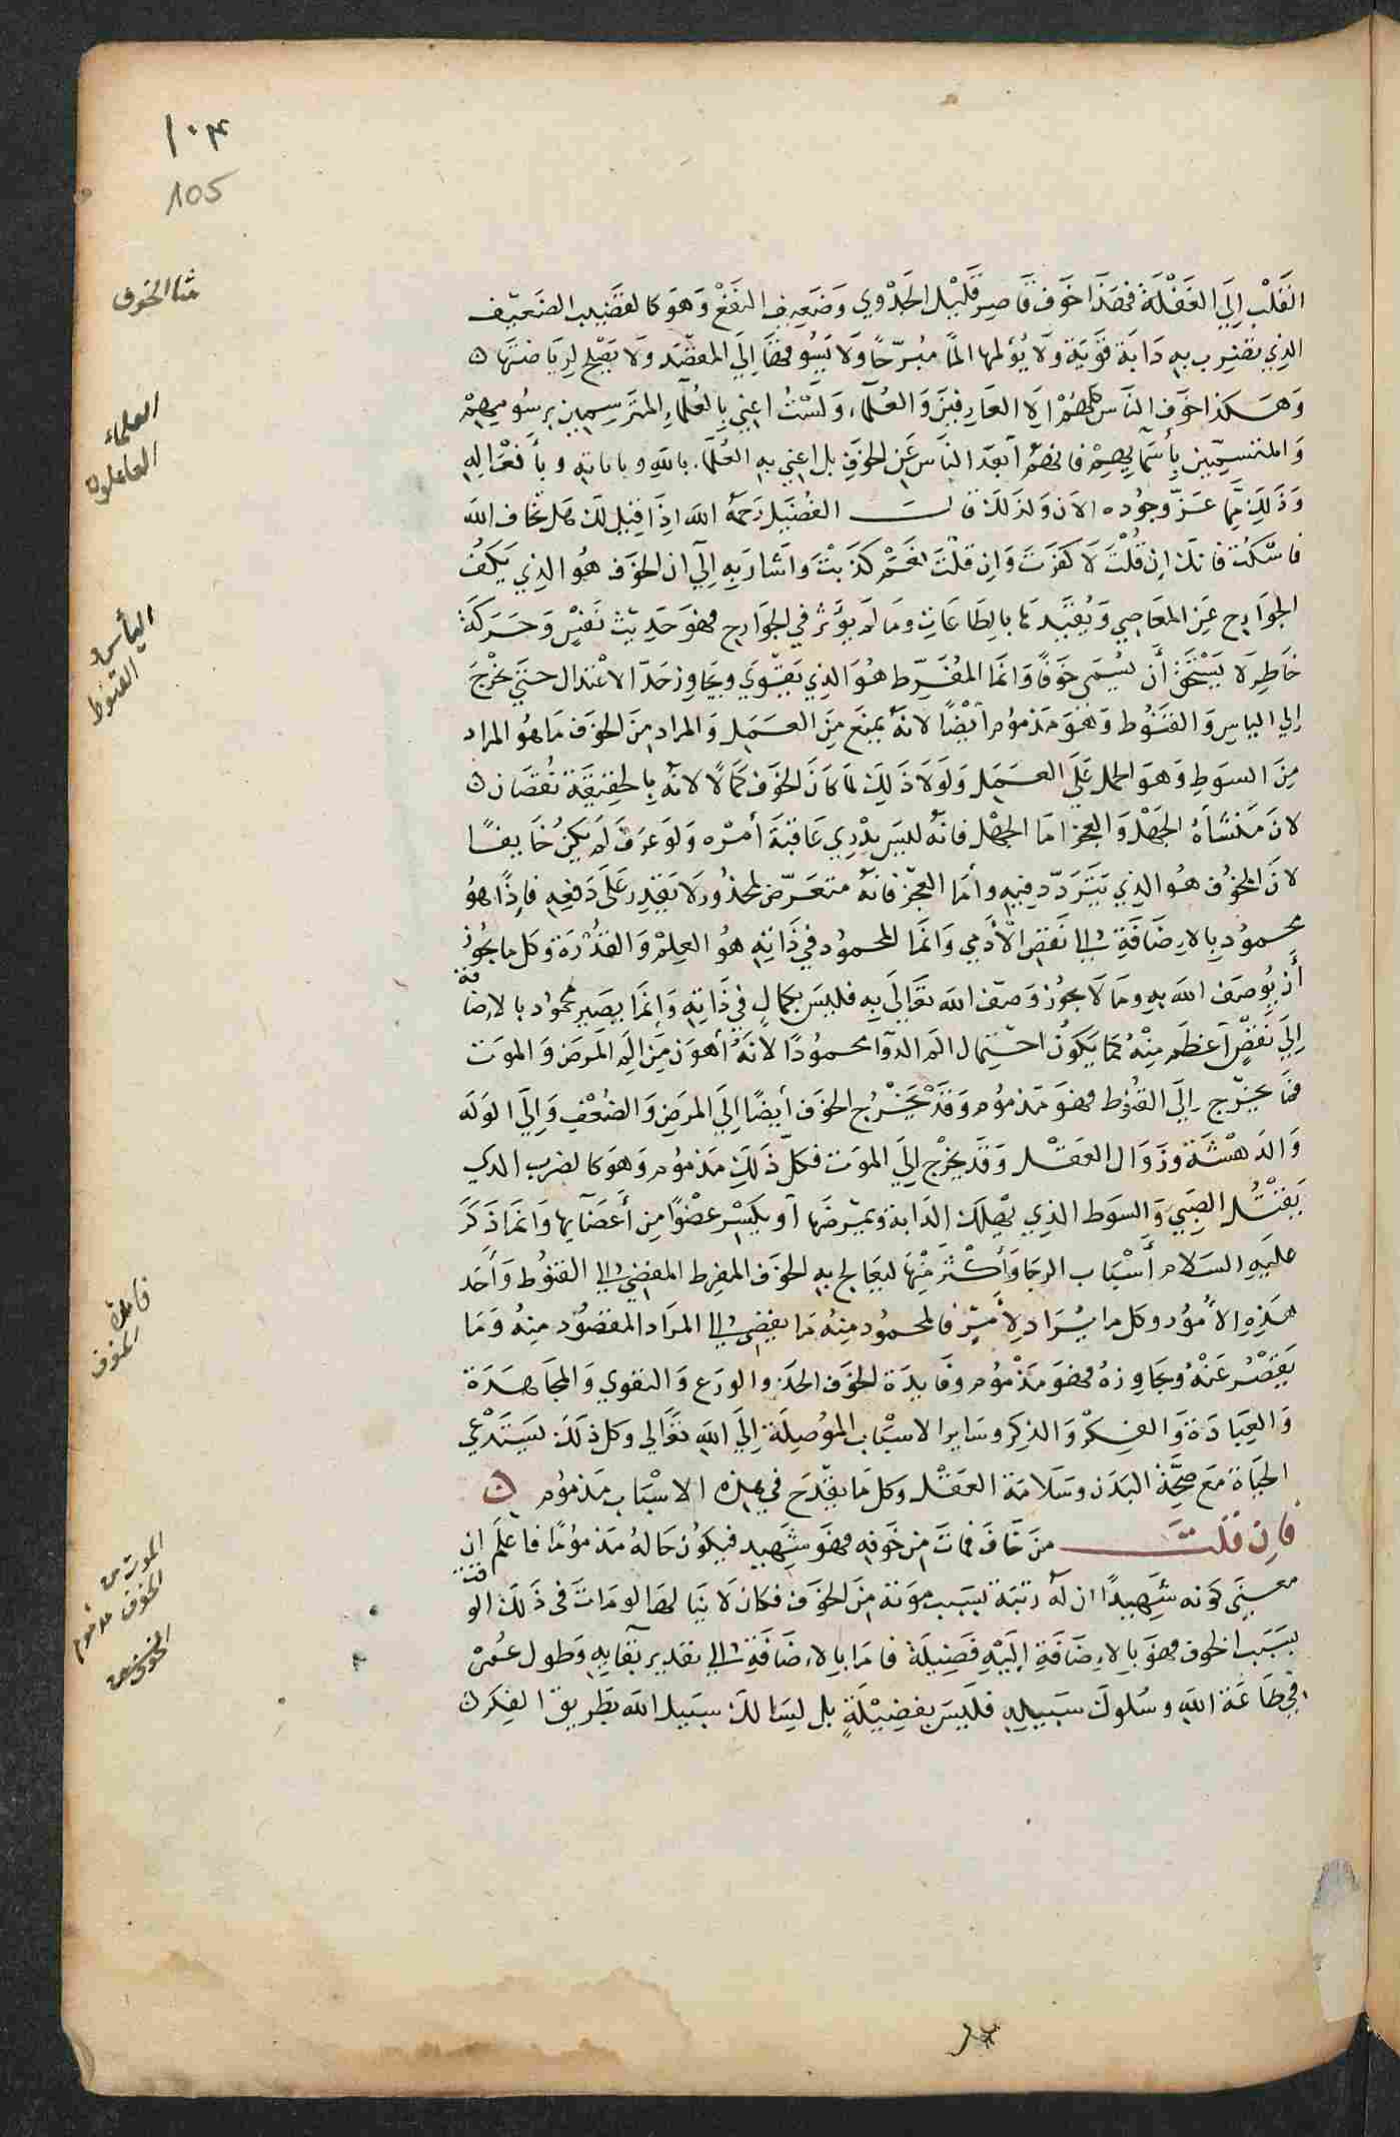 ١٠٤
105
القَلْب إِلَي الغَفْلَة فَهَذَا خَوَف قَاصِر قَليْل الجَدْوي وَضَعِيف النفْع وَهَوَ كالقَضَيب الضَعيْف
الذِي تضرب بهِ دَابَة قَوَيَة وَلَا يُؤلمها المًا مُبرّحًا وَلَا يَسُوقهَا إِلَي المقصَد وَلَا يصْلح لِريَاضتهَا ن
وَهَكذا خَوَف النَاسِ كلهُمْ إلَا العَارِفينَ وَالعُلمَآء وَلَسْتُ اعِني بِالعُلمَآءِ المترَسِمِين برسُومِهِمْ
وَالمتسمِّيين بأَسمَايهِمْ فانهُم أبعَد النَاسِ عَنِ الخوَفِ بل اعِني بهِ العُلمَا بالله وباياتهِ وبأفعَالِهِ
وَذَلِكَ مِمَّا عَزّ وجُوده الان وَلذَلكَ قالـــت الفُضَيل رَحمَهُ الله اذَا قيْل لكَ هَل تخَاف الله
فاسْكت فانك ان قُلْتَ لَا كفرَتَ وَان قلتَ نعَمْ كذَبْتَ وَاشَارَ بهِ إِلَي ان الخوَف هُو الذِي يَكفُ
الجوَارِح عَن المعَاصِي وَيُقيّدهَا بالطَاعَاتِ ومَا لَم يؤَثر في الجوَارح فهُوَ حَدِيث نَفسٍ وَحَرَكَة
خاطِر لَا يَسْتحَق أَن يُسَمى خوَفًا وَانما المُفَرِّط هُوَ الذِي يَقوي وَيجَاوِز حَدّ الاعْتدَال حتَي يخْرُجَ
إِلي الياسِ وَالقنَوُط وَهُوَ مَذمُوم أيضًا لانهُ يمنَع مِنَ العَمَل وَالمراد مِنَ الخوَف مَا هُوَ المراد
مِنَ السوَطِ وَهوَ الحمل عَلَي العَمَل وَلوَلَا ذَلِكَ لَمَا كَانَ الخوَف كمَالًا لانهُ بِالحقِيقَة نقصَان
لانَ مَنشأهُ الجَهْل وَالعجز امَا الجهْل فانهُ لَيسَ يدْرِي عَاقبَة أَمْره وَلوَ عرَف لَم يكن خَايفًا
لانَ المخَوُف هُوَ الذِي يَترَدّد فِيهِ وأَمَا العجْز فانهُ متعَرّض لمحذُور لَا يَقدِر عَلَى دَفعِهِ فإِذًا هوُ
محموُد بِالاِضَافَةِ الي نقص الأدَمي وَانمَا المحموُد في ذَاتهِ هُو العِلم وَالقدْرَة وَكل ما يجُوز
أَن يُوصَف الله بهِ ومَا لَا يجوُز وَصف الله تعَالَي بهِ فليسَ بكمالٍ في ذَاتِهِ وَإنمَا يصير محموُد بالاِضافة
إِلَي نقصٍ أعظَم مِنْهُ كما يَكوُن احْتمَال الم الدوَآ محموُدًا لانهُ أهوَن مِنَ الَم المرَض وَالموَت
فمَا يخرُج إِلَى القنُوط فهُوَ مَذموُم وَقدْ يخْرُج الخوَف أيضًا إِلَي المرَضِ وَالضعْفِ وَإِلَي الوَلَه
وَالدَهشَة وزَوَال العَقل وَقدَ يخرُج إِلَي الموَت فكلّ ذَلِكَ مَذموُم وَهوَ كالضرب الذي
يَقْتُل الصَبيَ وَالسوَط الذِي يهْلك الدَابة وَيمرضهَا أو يَكسْر عضْوًا مِن أعضَآيها وَانمَا ذكَرَ
عليَهِ السَلَام أسْبَاب الرجَا وَأَكثَر مِنْهَا ليعَالِج بهِ الخوَف المفرط المفضِي الي القنوُط وَأحَد
هَذِهِ الأمُوُر وكل ما يُرَاد لِأمْرٍ فالمحموُد مِنهُ مَا يفضي الي المرَاد المقصُوُد مِنهُ وَمَا
يَقصُر عَنهُ وَيجَاوِزهُ فهُوَ مَذْموُم وفَايدَة الخوَف الحذَر والورَع وَالتقوي وَالمجَاهَدَة
وَالعِبَادَة وَالفِكر وَالذِكر وسَاير الاسْبَاب المُوْصِلَة إِلَي الله تعَالي وكل ذَلكَ يَسْتَدْعي
الحيَاة مَع صِحَّة البَدَن وسَلَامَة العَقْل وَكل مَا يقدَح في هذه الاسْبَاب مَذموُم ن
فاِن قلتَ مَن خَافَ فمَاتَ مِن خَوَفهِ فهوَ شَهِيد فيكوُن حَالهُ مَذموُمًا فاعلَم ان
معنِي كوَنه شَهِيدًا ان لَهُ رتبَة بسَبب موَته مِنَ الخوَف فكان لَا ينَالهَا لو مَاتَ في ذَلكَ الوقت
بسَبَب الخوف فهُوَ بِالاِضَافَةِ إليَهِ فضِيلَة فامَا بِالاِضَافَةِ الي تقدِير بقآيهِ وَطول عُمْرهِ
في طَاعَة الله وسُلوك سَبيلِهِ فلَيسَ بفضِيْلَةٍ بل لِسَالك سبَيل الله بطَريق الفِكر
منا الخوف
العلماء
العاملون
اليأس و
القنوط
فائدة
الخوف
الموت من
الخوف مذموم